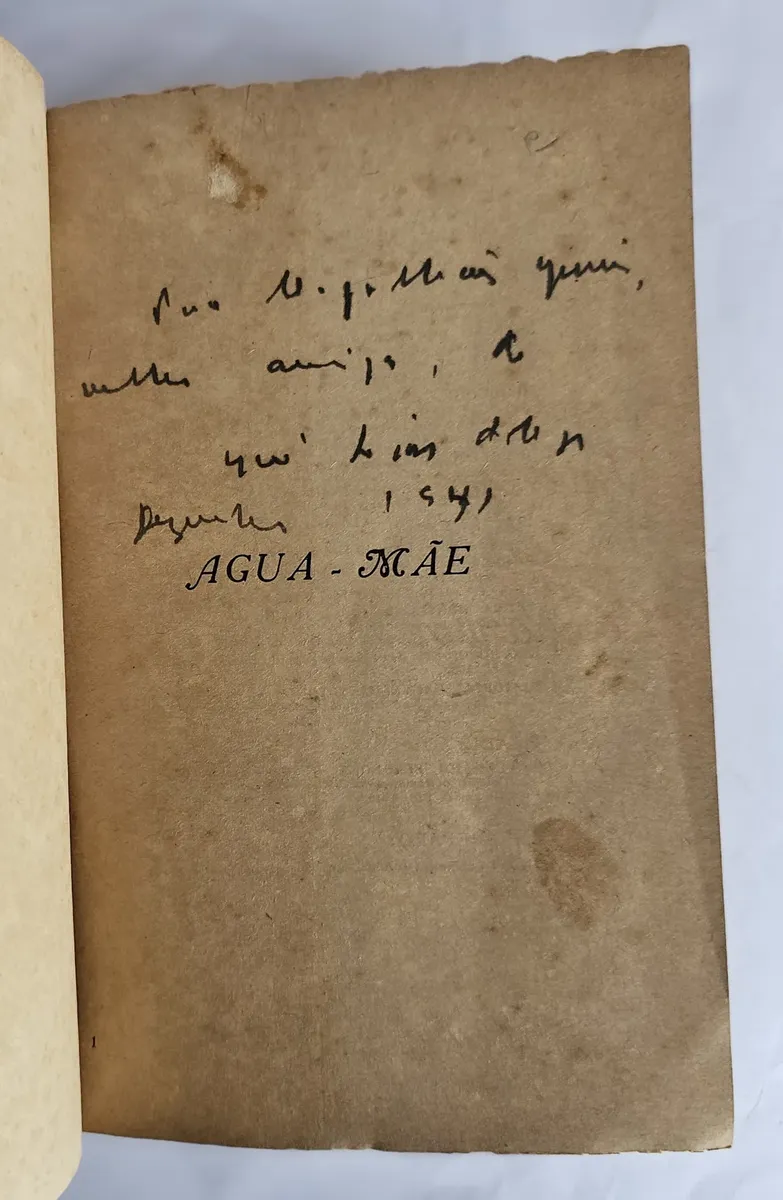 Para Magalhães
velho amigo, de
José Lins do Rego
Dezembro 1941
AGUA - MÃE
1